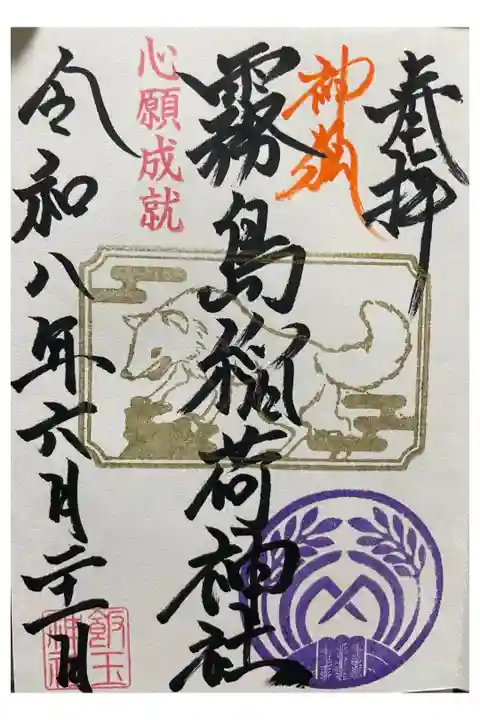 奉拝
神狐
霧島稲荷神社
心願成就
令和八年六月二十一日
飯玉神社